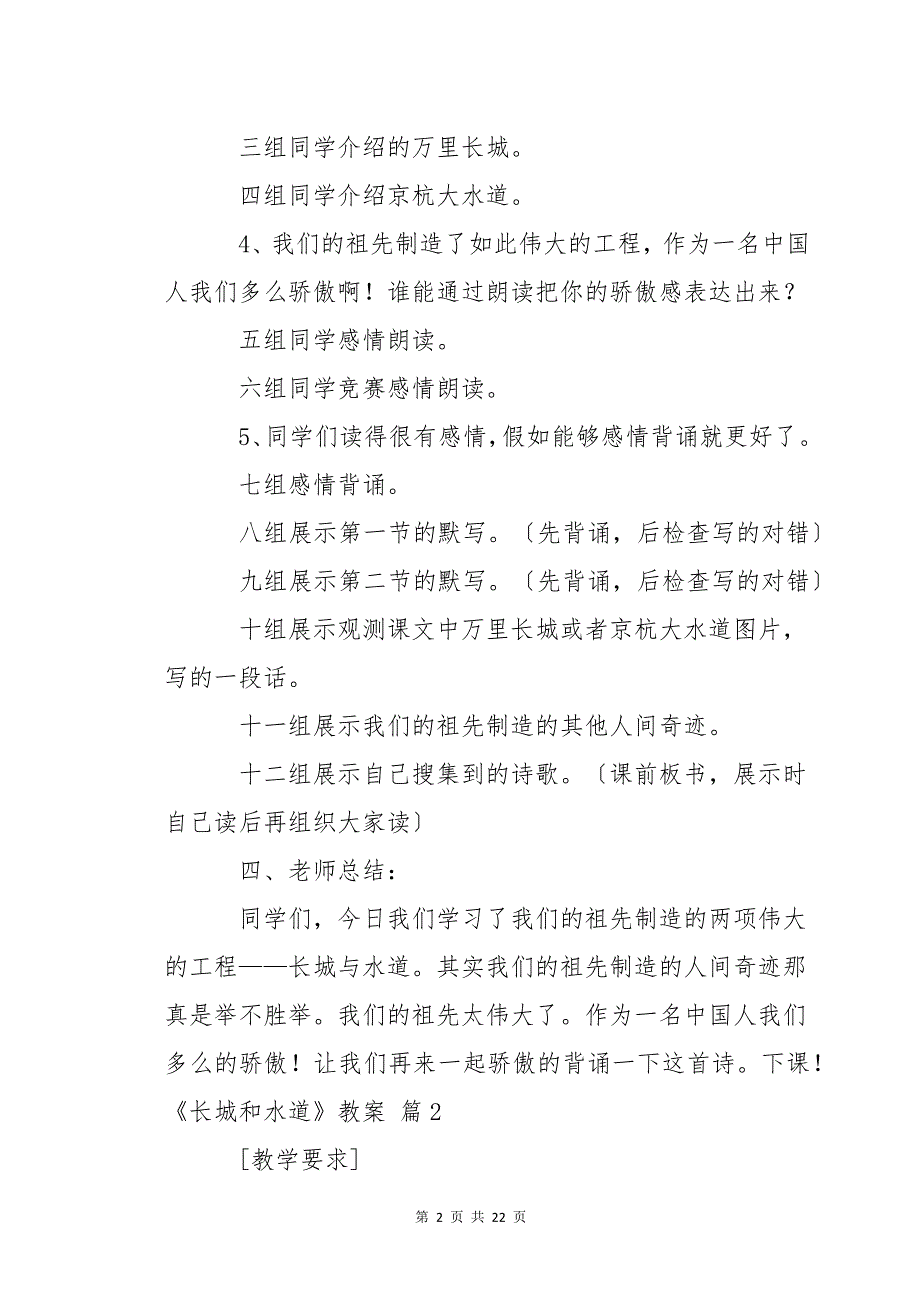 三组同学介绍的万里长城。
四组同学介绍京杭大水道。
4、我们的祖先制造了如此伟大的工程，作为一名中国
人我们多么骄傲啊！谁能通过朗读把你的骄傲感表达出来？
五组同学感情朗读。
六组同学竞赛感情朗读。
5、同学们读得很有感情，假如能够感情背诵就更好了。
七组感情背诵。
八组展示第一节的默写。〔先背诵，后检查写的对错〕
九组展示第二节的默写。〔先背诵，后检查写的对错〕
十组展示观测课文中万里长城或者京杭大水道图片，
写的一段话。
十一组展示我们的祖先制造的其他人间奇迹。
十二组展示自己搜集到的诗歌。〔课前板书，展示时
自己读后再组织大家读〕
四、老师总结：
同学们，今日我们学习了我们的祖先制造的两项伟大
的工程——长城与水道。其实我们的祖先制造的人间奇迹那
真是举不胜举。我们的祖先太伟大了。作为一名中国人我们
多么的骄傲！让我们再来一起骄傲的背诵一下这首诗。下课！
《长城和水道》教案 篇2
[教学要求]
第 2 页 共 22 页